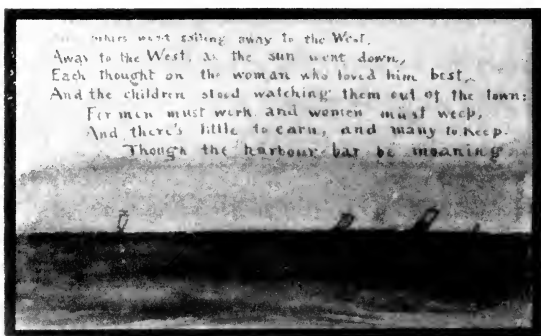 fishers went sailing away to the West,
Away to the West, as the sun went down,
Each thought on the woman who loved him best,
And the children stood watching them out of the town;
For men must work and women must weep,
And there's little to earn, and many to keep.
Though the harbour bar be moaning